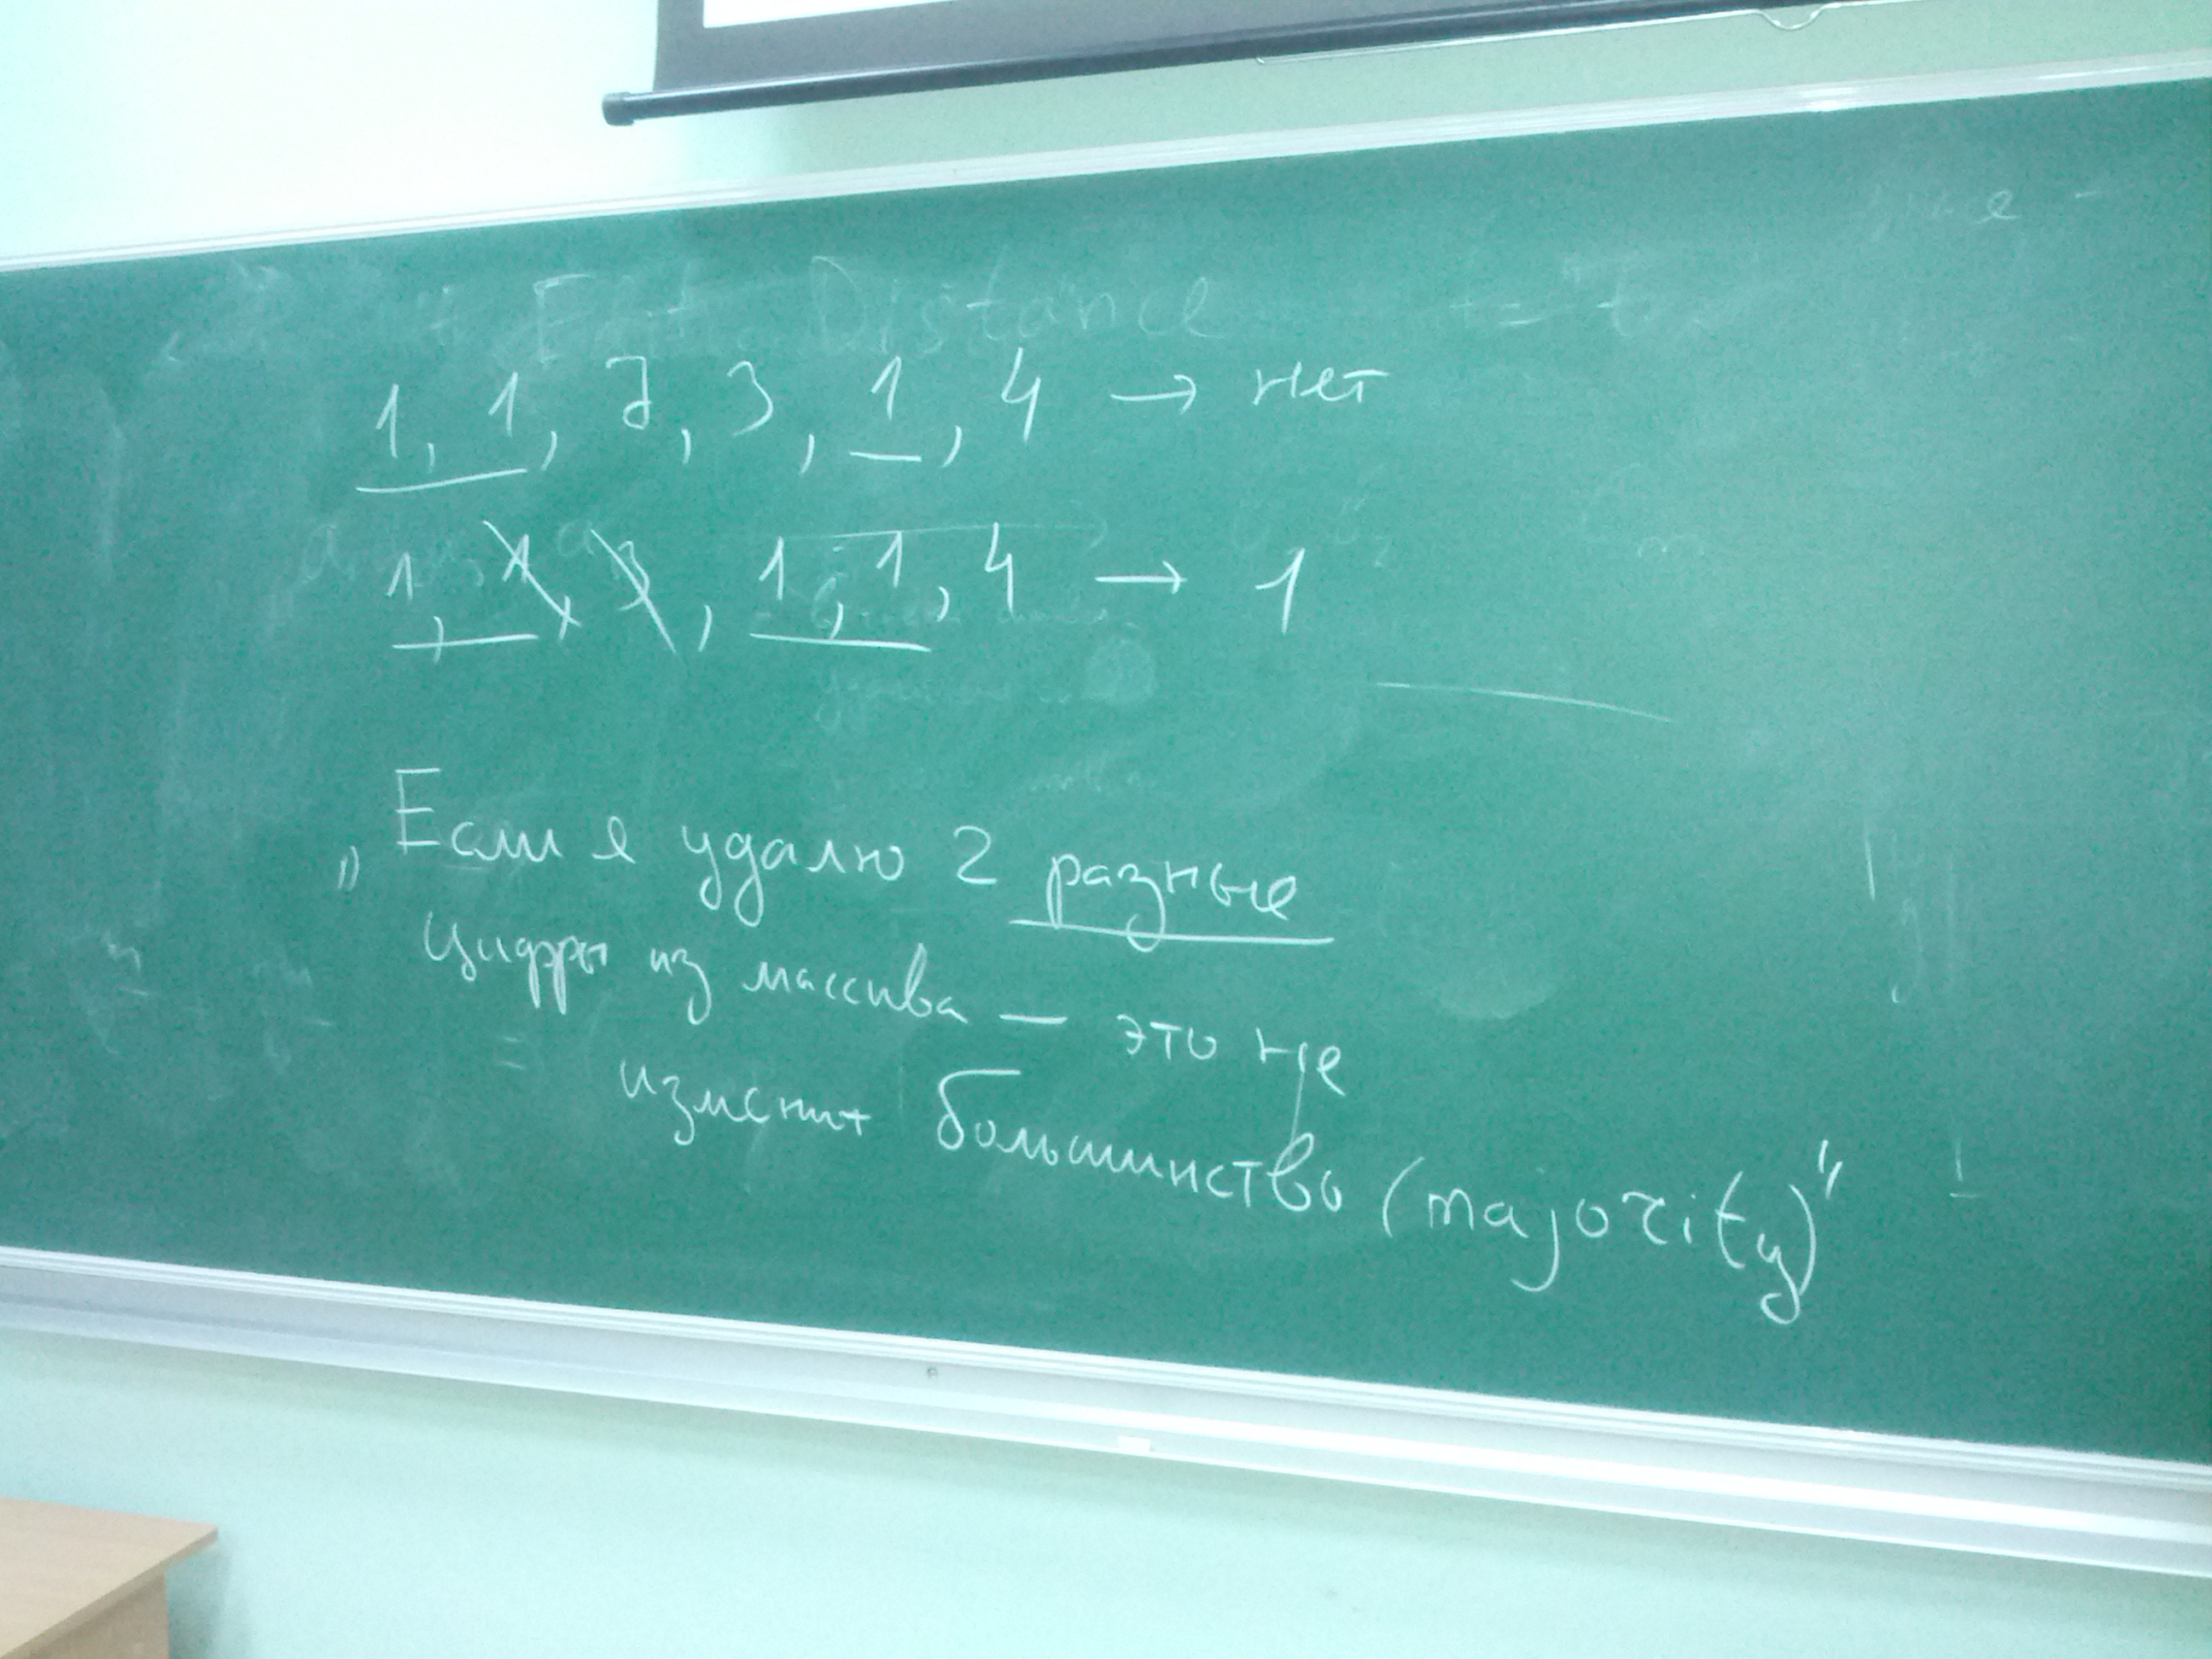 Edit Distance
1, 1, 2, 3, 1, 4 → нет
1, 1, 3, 1, 1, 4 → 1
„Если я удалю 2 разные
цифры из массива — это не
изменит большинство (majority)"